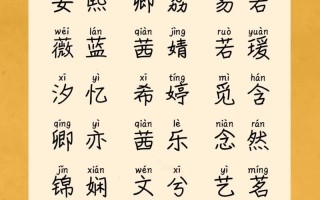 安 熙 卿 荔 易 若
wēi lán qiàn jìng ruò yuàn
薇 蓝 茜 婧 若 瑗
xī yì xī tíng mì hán
汐 忆 希 婷 觅 含
qīng yì qiàn lè niàn rán
卿 亦 茜 乐 念 然
jǐn xián wén xī yì míng
锦 娴 文 兮 艺 茗